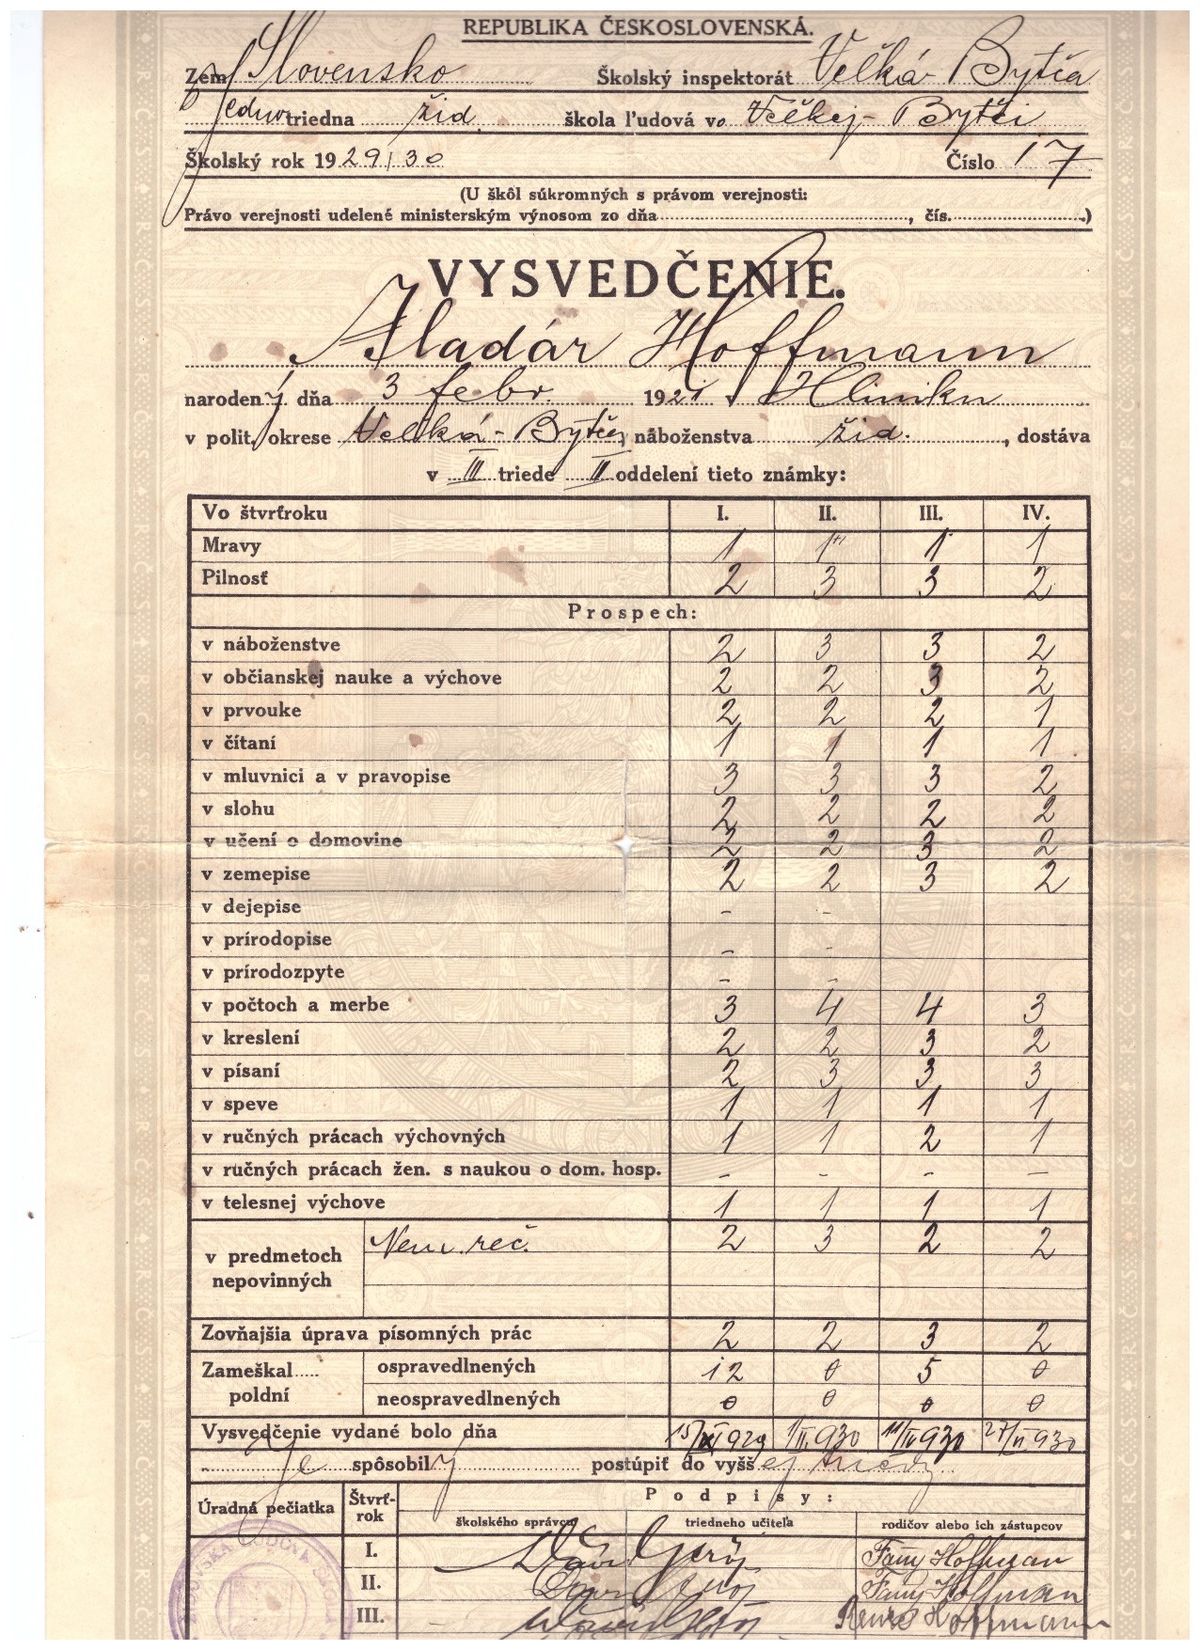 REPUBLIKA ČESKOSLOVENSKÁ.
Zem Slovensko Školský inspektorát Veľká Bytča
Jednotriedna žid. škola ľudová vo Veľkej-Bytči
Školský rok 1929/30 Číslo 17
(U škôl súkromných s právom verejnosti:
Právo verejnosti udelené ministerským výnosom zo dňa , čís. .)
VYSVEDČENIE.
Aladár Hoffmann
narodený dňa 3 febr. 1921 v Hliniku
v polit. okrese Veľká-Bytča, náboženstva žid. , dostáva
v III triede II oddelení tieto známky:
Vo štvrťroku I. II. III. IV.
Mravy 1 1 1 1
Pilnosť 2 3 3 2
Prospech:
v náboženstve 2 3 3 2
v občianskej nauke a výchove 2 2 3 2
v prvouke 2 2 2 1
v čítaní 1 1 1 1
v mluvnici a v pravopise 3 3 3 2
v slohu 2 2 2 2
v učení o domovine 2 2 3 2
v zemepise 2 2 3 2
v dejepise - -
v prírodopise - -
v prírodozpyte - -
v počtoch a merbe 3 4 4 3
v kreslení 2 2 3 2
v písaní 2 3 3 3
v speve 1 1 1 1
v ručných prácach výchovných 1 1 2 1
v ručných prácach žen. s naukou o dom. hosp. - - - -
v telesnej výchove 1 1 1 1
v predmetoch nepovinných Nem. reč. 2 3 2 2
Zovňajšia úprava písomných prác 2 2 3 2
Zameškal..... poldní ospravedlnených 12 0 5 0
neospravedlnených 0 0 0 0
Vysvedčenie vydané bolo dňa 15/XI 929 1/II 930 11/IV 930 27/VI 930
Je spôsobilý postúpiť do vyššej triedy
Úradná pečiatka Štvrť-rok Podpisy:
školského správcu triedneho učiteľa rodičov alebo ich zástupcov
I. Fany Hoffman
II. Fany Hoffman
III. Hoffmann
ĽUDOVÁ ŠKOLA